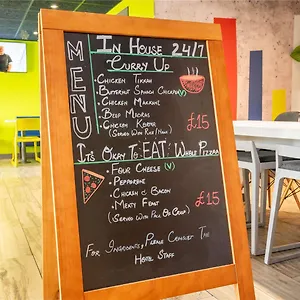 MENU
IN HOUSE 24/7
CURRY UP
• CHICKEN TIKKAH
• BUTTERNUT SPINACH CHICKPEA (V)
• CHICKEN MAKHANI
• BEEF MADRAS
• CHICKEN KORMA
(SERVED WITH RICE / NAAN)
£15
ITS OKAY TO "EAT" WHOLE PIZZAS
• FOUR CHEESE (V)
• PEPPERONI
• CHICKEN & BACON
• MEATY FEAST
(SERVED WITH
£15
FOR INGREDIENTS, PLEASE CONSULT THE
HOTEL STAFF